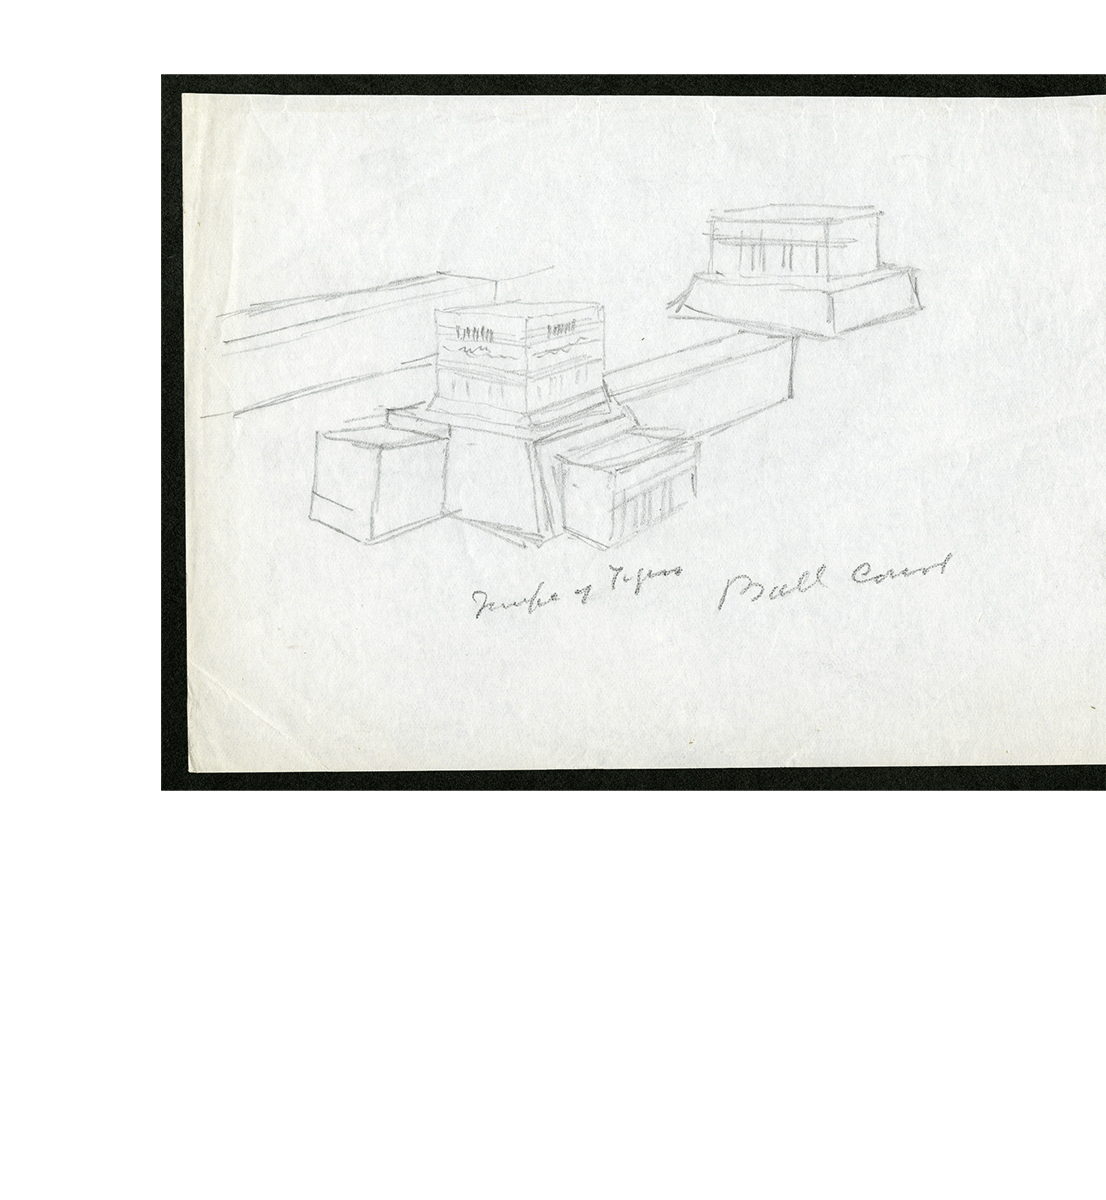 Temple of Tigers Ball Court